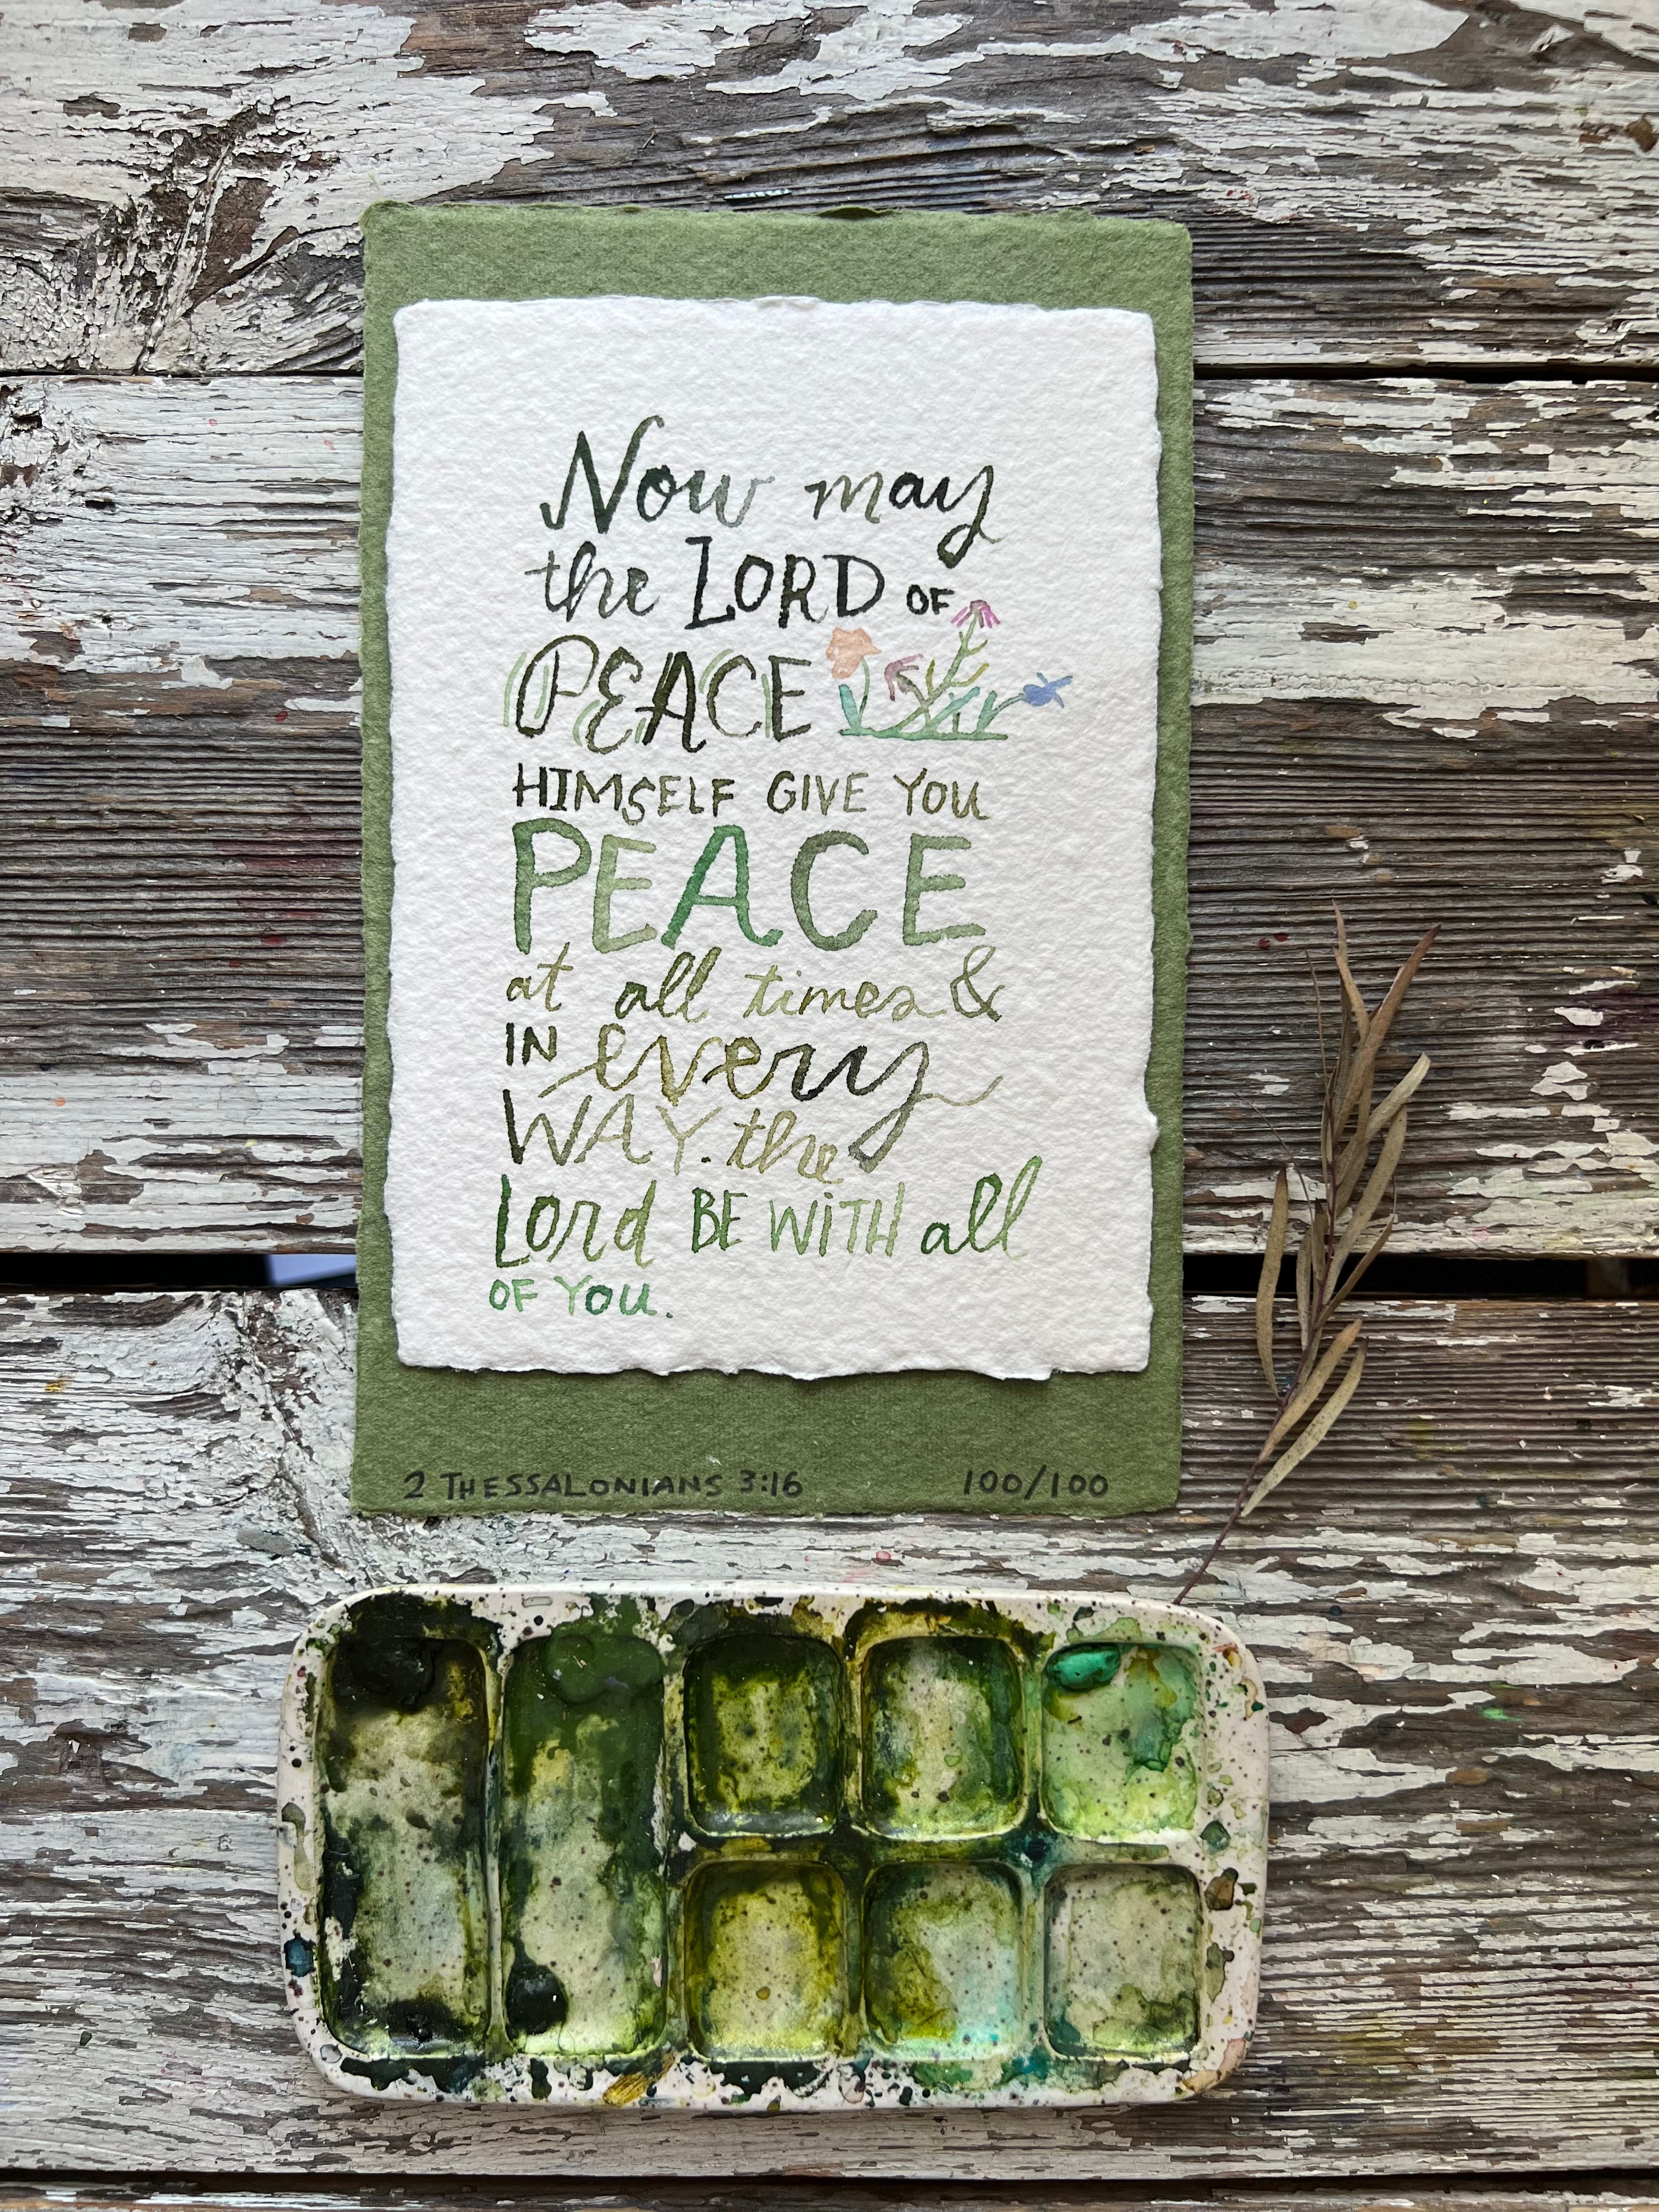 Now may
the LORD OF
PEACE
HIMSELF GIVE YOU
PEACE
at all times &
IN every
WAY. the
Lord BE WiTH all
OF YOU.
2 THESSALONIANS 3:16 100/100